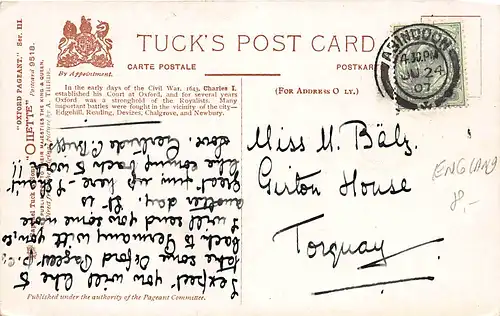 TUCK'S POST CARD
CARTE POSTALE
POSTKARTE
By Appointment.
(FOR ADDRESS O LY.)
In the early days of the Civil War, 1643, Charles I.
established his Court at Oxford, and for several years
Oxford was a stronghold of the Royalists. Many
important battles were fought in the vicinity of the city—
Edgehill, Reading, Devizes, Chalgrove, and Newbury.
"OXFORD PAGEANT." Ser. III.
"OILETTE" Postcard 9518.
ABINGDON
JU 24
07
I expect you will like to
take some Oxford Pageant p.cs,
back to Germany with you, so
I will send you some more
another day. It is
great fun up here - I don't
like coming back to work!!
Love.
Miss M. Bälz.
Girton House
Torquay
ENGLAND
8,-
Published under the authority of the Pageant Committee.